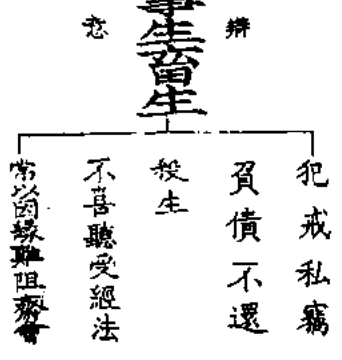 辨
事生畜生
意
犯戒私竊
負債不還
殺生
不喜聽受經法
常以因緣難阻齋會